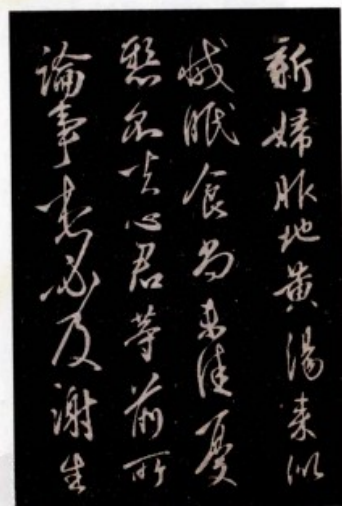 新婦服地黃湯來似
減眠食尚未佳憂
懸不去心君等前所
論事想必及謝生